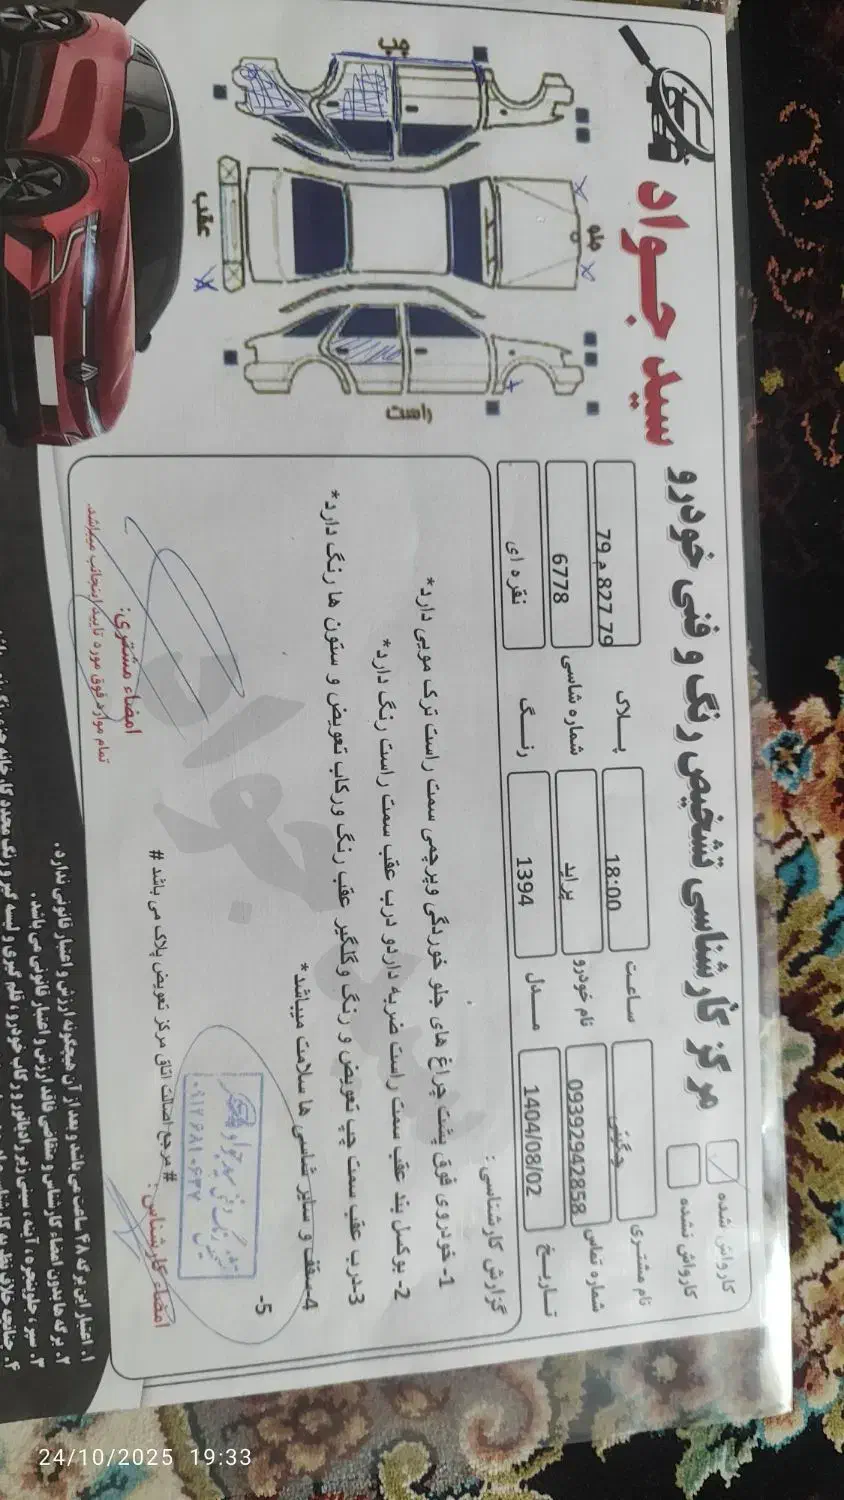 مرکز کارشناسی تشخیص رنگ و فنی خودرو سید جواد
کارواش شده
کارواش نشده
نام مشتری
چگینی
ساعت
18:00
پلاک
79 827 م 79
شماره تماس
09392942858
نام خودرو
پراید
شماره شاسی
6778
تاریخ
1404/08/02
مدل
1394
رنگ
نقره ای
گزارش کارشناسی :
1- خودروی فوق پشت چراغ های جلو خوردگی وپرچمی سمت راست ترک مویی دارد*
2- بوکسل بند عقب سمت راست ضربه داردو درب عقب سمت راست رنگ دارد*
3-درب عقب سمت چپ تعویض و رنگ وگلگیر عقب رنگ ورکاب تعویض و ستون ها رنگ دارد*
4-سقف و سایر شاسی ها سلامت میباشد*
5-
#مرجع اصالت اتاق مرکز تعویض پلاک می باشد #
امضاء کارشناس :
امضاء مشتری:
تمام موارد فوق مورد تایید اینجانب میباشد.
چپ
جلو
عقب
راست
سید جواد
۰۹۱۲۶۸۱۰۶۳۷
۱. اعتبار این برگه ۴۸ ساعت می باشد و بعد از آن هیچگونه ارزش و اعتبار قانونی ندارد.
۲. برگه ها بدون امضاء کارشناس و متقاضی فاقد ارزش و اعتبار قانونی می باشد.
24/10/2025 19:33